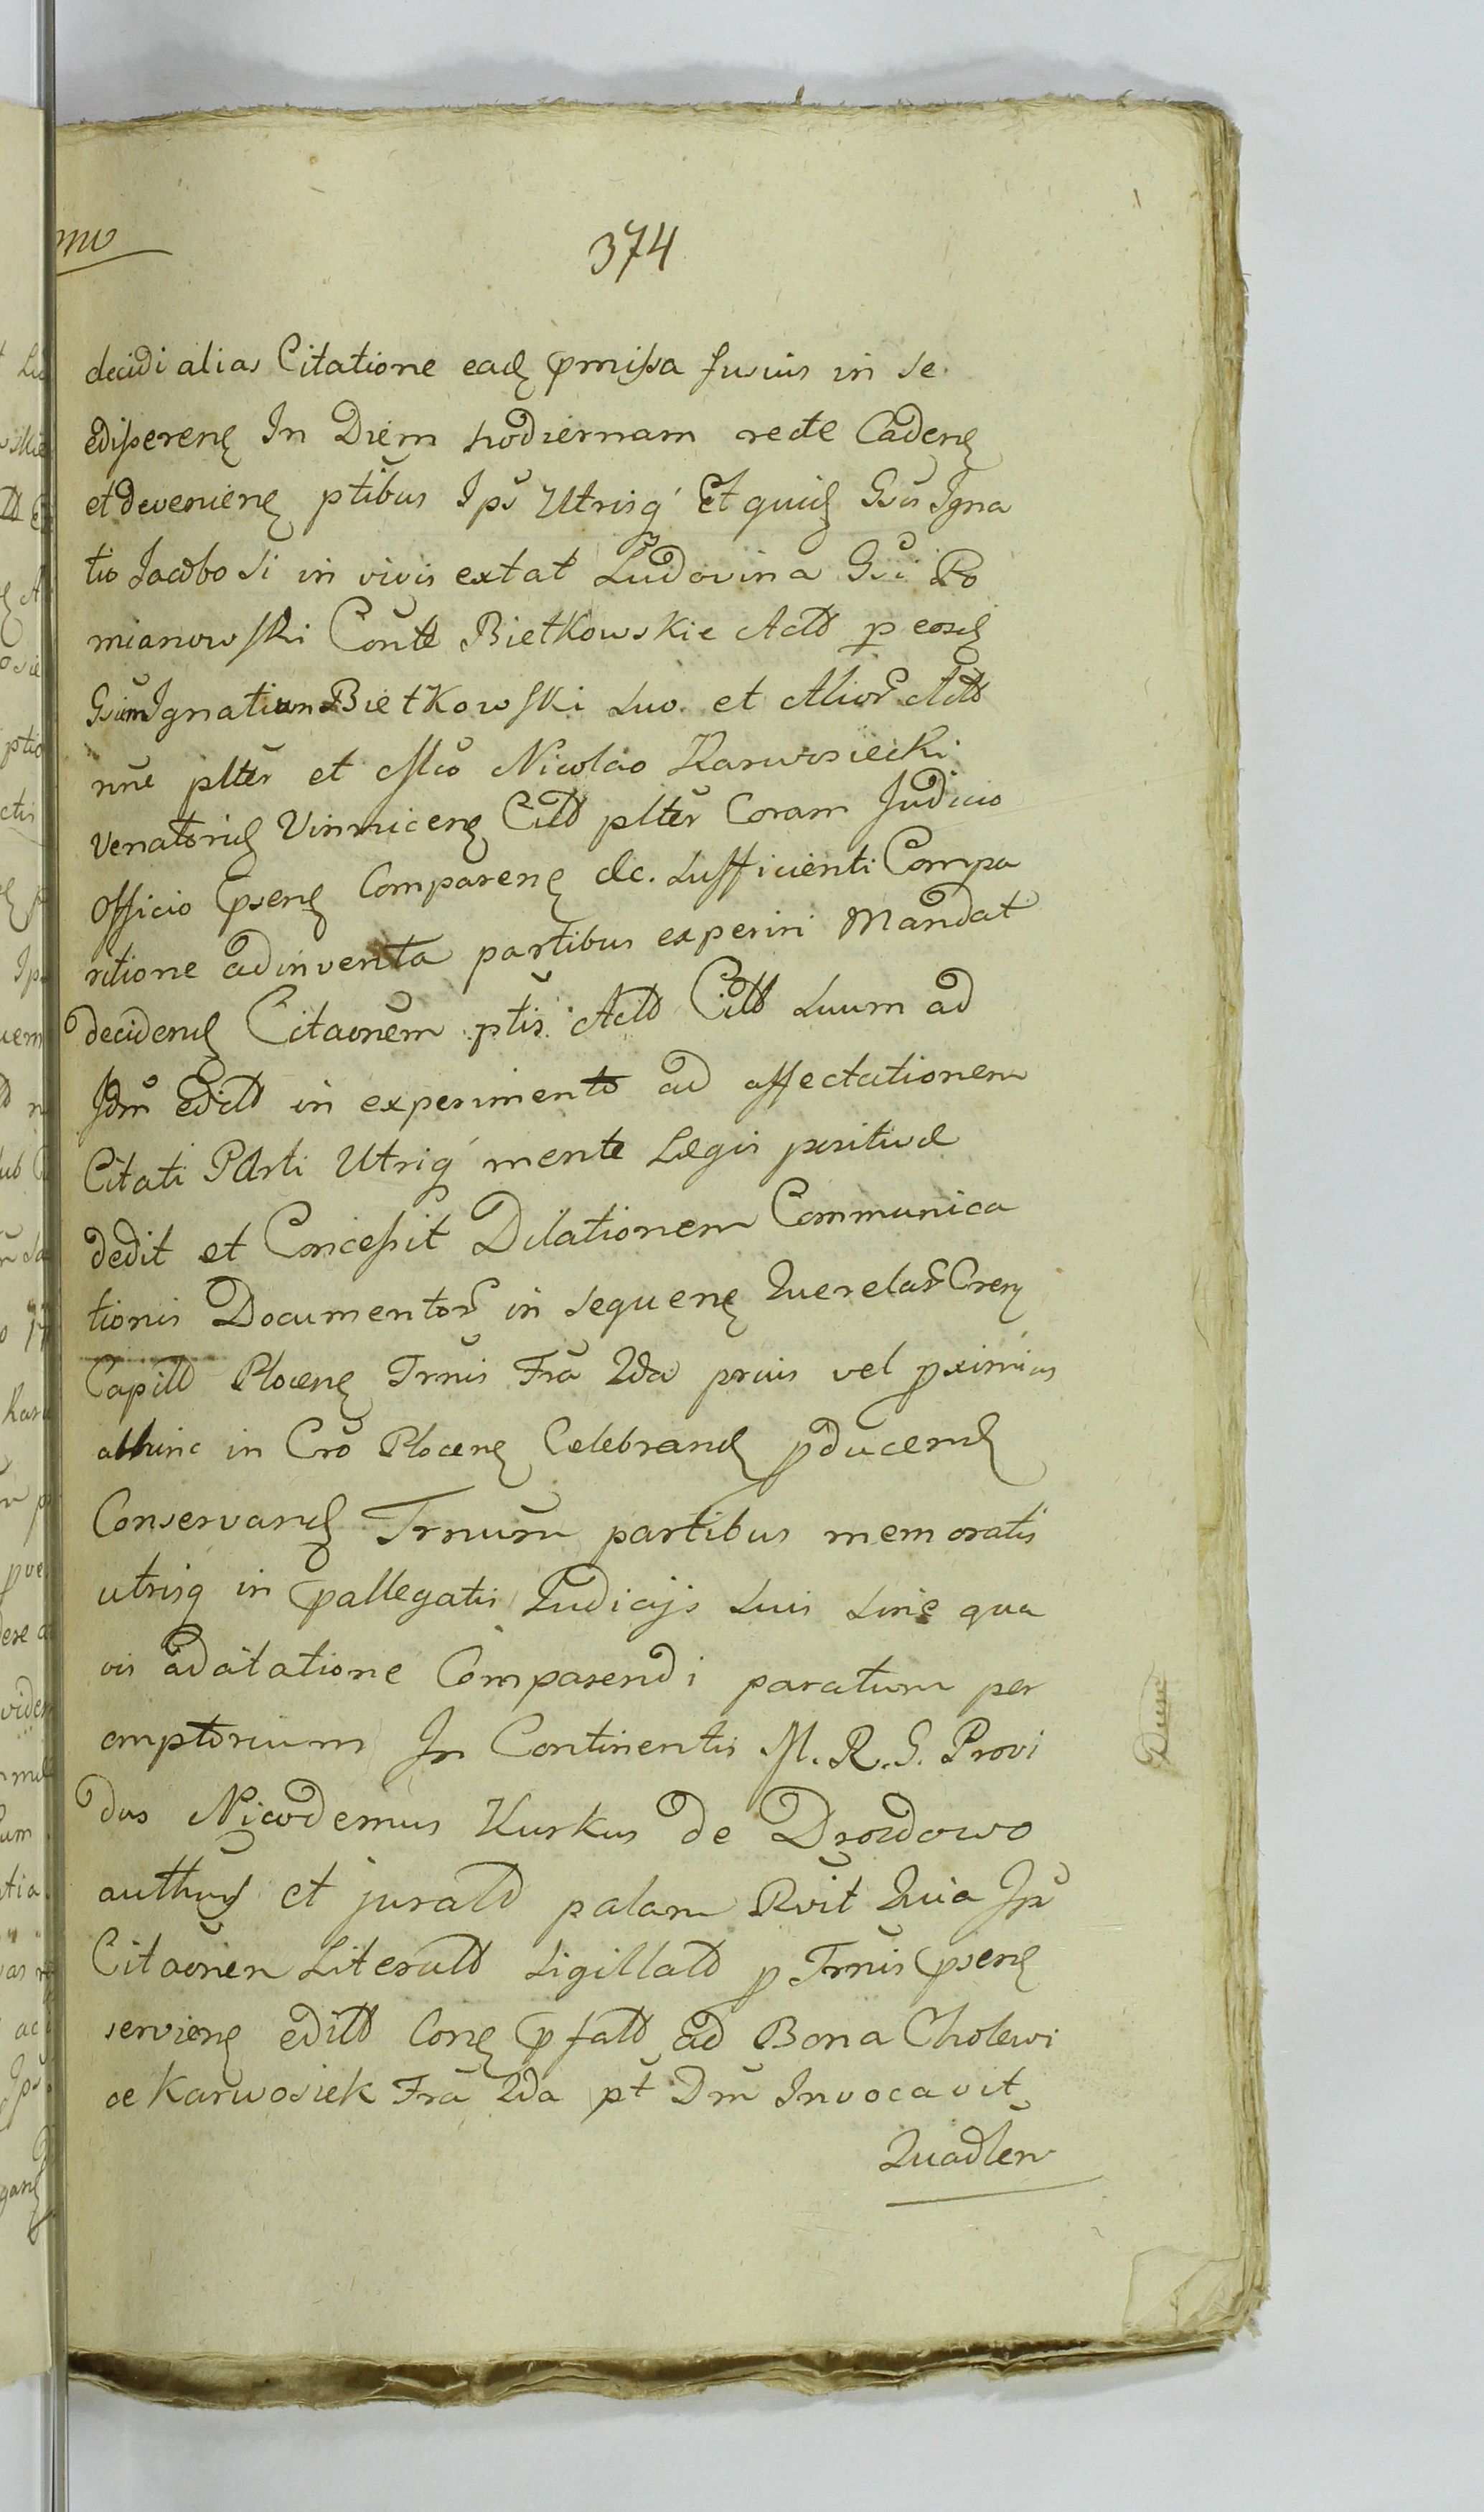 374
decidi alias Citatione eadę pmissa fusius in se
edisserenę In Diem hodiernam recte Cadenę
et devenienę ptibus Ips Utrisq Et quidę Gsis Igna
tio Jacobo si in vivis extat Ludovina Gsi Po
mianowski Conte Bietkowskie Actt p eosdę
Gsum Ignatium Bietkowski suo et Alior Actt
nne plter et Mco Nicolao Karwosiecki
Venatoridę Vinnicenę Citt plter Coram Judicio
Officio psenę Comparenę &c. sufficienti Compa
ritione adinventa partibus experiri Mandat
decidendę Citaonem ptis Actt Citt suum ad
Idm editt in experimento ad affectationem
Citati Parti Utriq mente Legis positivæ
dedit et Concessit Dilationem Communica
tionis Documentor in sequenę Querelar Cren
Capitt Plocenę Trnis Fra 2da prius vel pximius
abhinc in Cro Plocenę Celebrandę pducendę
Conservandę Trnum partibus memoratis
utrisq in pallegatis Judicijs suis sine qua
vis adcitatione Comparendi paratum per
emptorium In Continentis M. R. G. Provi
dus Nicodemus Kurkus de Drozdowo
authus et juratt palam Rvit Quia Ips
Citaonen Literatt sigillatt p Trnis psenę
servienę editt Conę pfatt ad Bona Cholewi
ce Karwosiek Fra 2da pt Dm Invocavit
Quadlen